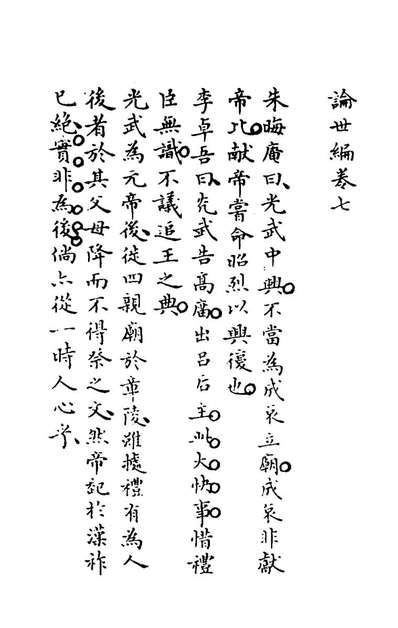 論世編卷七
朱晦庵曰光武中興不當為成哀立廟成哀非獻
帝比獻帝嘗命昭烈以興復也
李卓吾曰光武告高廟出呂后主此大快事惜禮
臣無識不議追王之典
光武為元帝後徙四親廟於章陵雖據禮有為人
後者於其父母降而不得祭之文然帝起於漢祚
已絕實非為後倘亦從一時人心乎